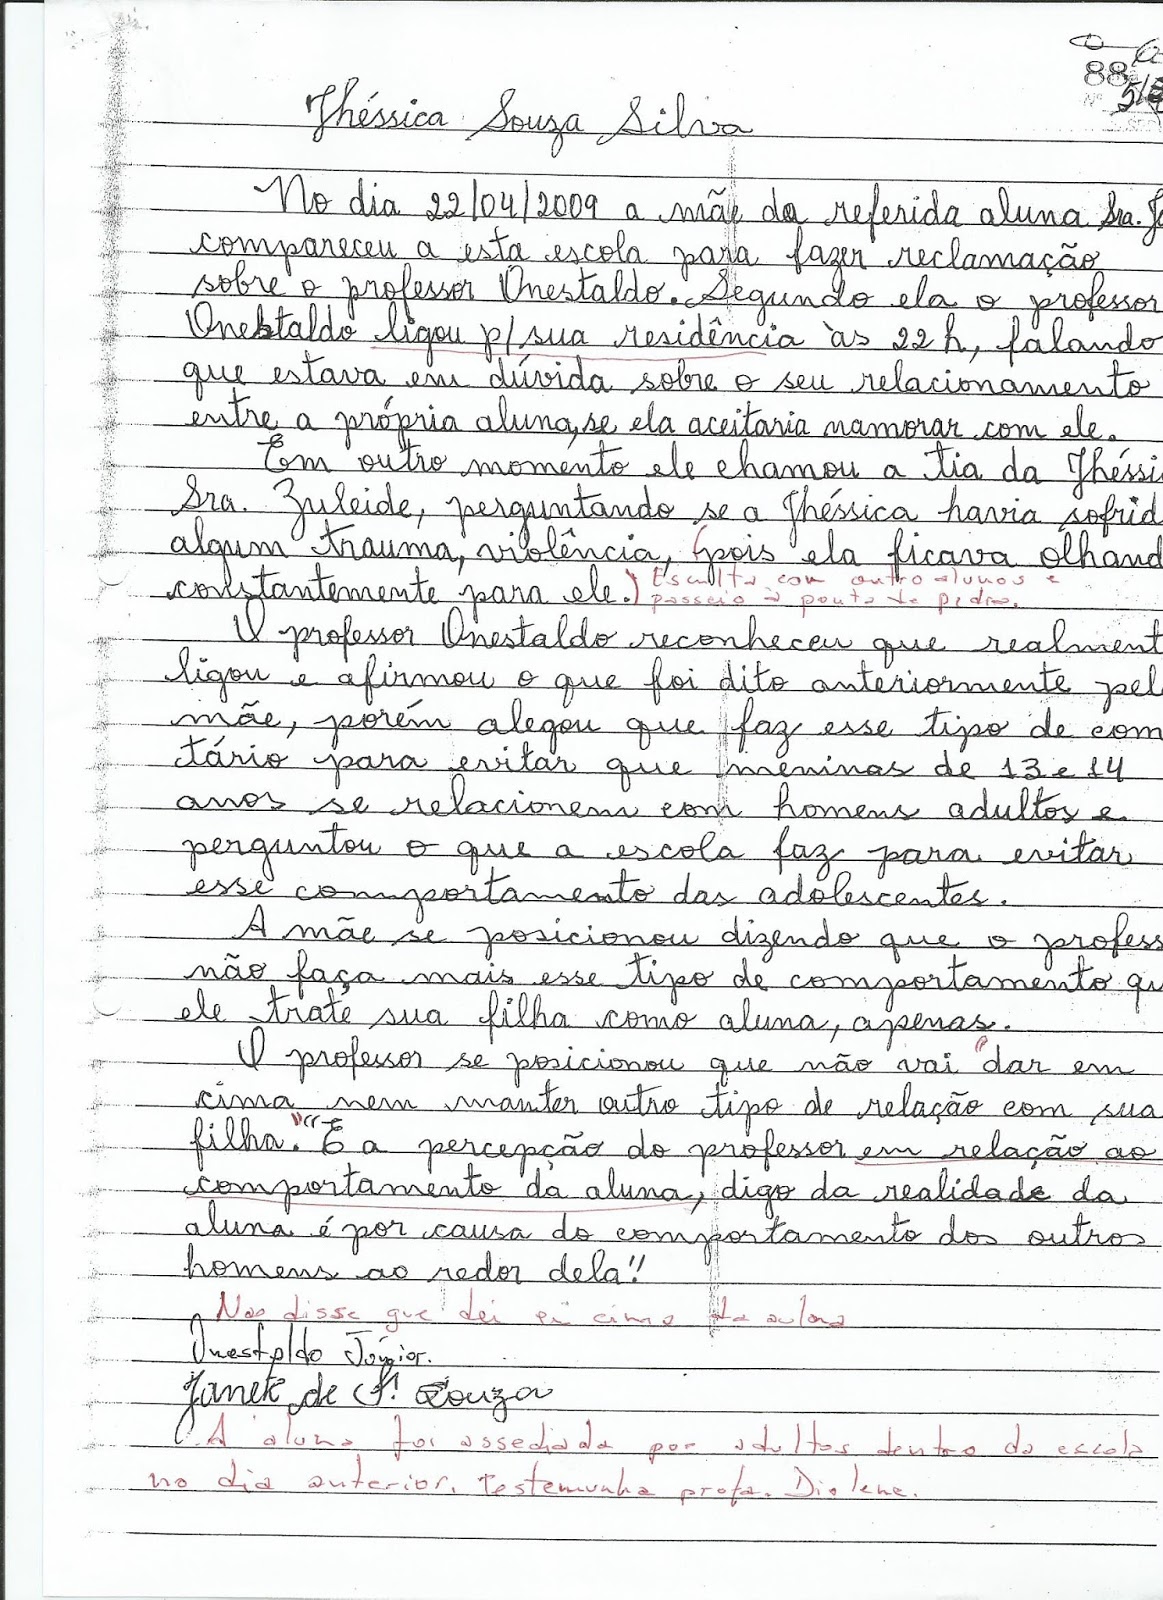 88
Jhéssica Souza Silva
No dia 22/04/2009 a mãe da referida aluna Sra.
compareceu a esta escola para fazer reclamação
sobre o professor Onestaldo. Segundo ela o professor
Onestaldo ligou p/ sua residência às 22 h, falando
que estava em dúvida sobre o seu relacionamento
entre a própria aluna, se ela aceitaria namorar com ele.
Em outro momento ele chamou a tia da Jhéssi
Sra. Zuleide, perguntando se a Jhéssica havia sofrid
algum trauma, violência, (pois ela ficava olhand
constantemente para ele.) Escuita com outro alunos e
passeio a ponta de pedra.
O professor Onestaldo reconheceu que realment
ligou e afirmou o que foi dito anteriormente pel
mãe, porém alegou que faz esse tipo de com
tário para evitar que meninas de 13 e 14
anos se relacionem com homens adultos e
perguntou o que a escola faz para evitar
esse comportamento das adolescentes.
A mãe se posicionou dizendo que o profess
não faça mais esse tipo de comportamento qu
ele trate sua filha como aluna, apenas.
O professor se posicionou que não vai "dar em
cima nem manter outro tipo de relação com sua
filha." "É a percepção do professor em relação ao
comportamento da aluna, digo da realidade da
aluna é por causa do comportamento dos outros
homens ao redor dela!!
Nao disse que dei em cima da aluna
Onestaldo Júnior.
Janete de Souza
A aluna foi assediada por adultos dentro da escola
no dia anterior. Testemunha profa. Diolene.